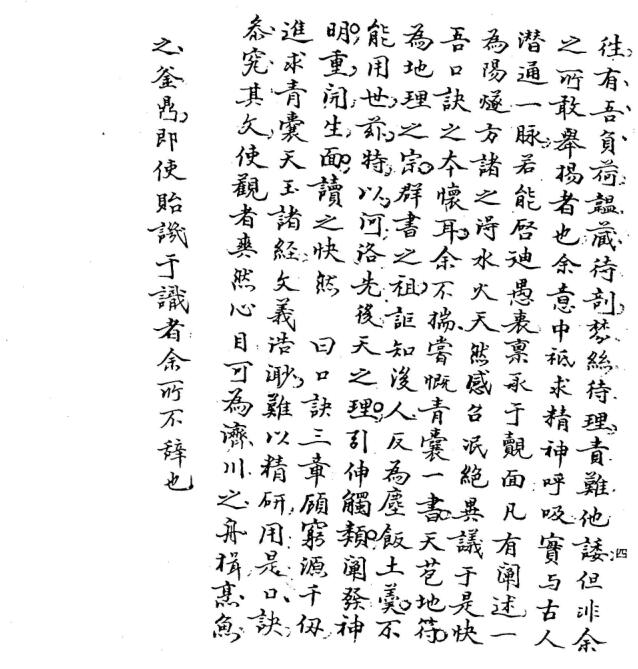 往有吾負荷韞藏待剖棼絲待理責難他諉但非余
之所敢舉揚者也余意中祇求精神呼吸實与古人
潜通一脉若能啓迪愚衷稟承于覿面凡有阐述一
為陽燧方諸之淂水火天然感召泯絶異議于是快
吾口訣之本懷耳余不揣嘗慨青囊一書天苞地符
為地理之宗群書之祖詎知後人反為塵飯土羮不
能用世兹特以河洛先後天之理引伸觸類阐發神
明重開生面讀之快然 曰口訣三章頋窮源千仭
進求青囊天玉諸經文義浩渺難以精研用是口訣
叅究其文使觀者爽然心目可為濟川之舟楫烹魚
之釜鼎即使貽譏于識者余所不辞也
四